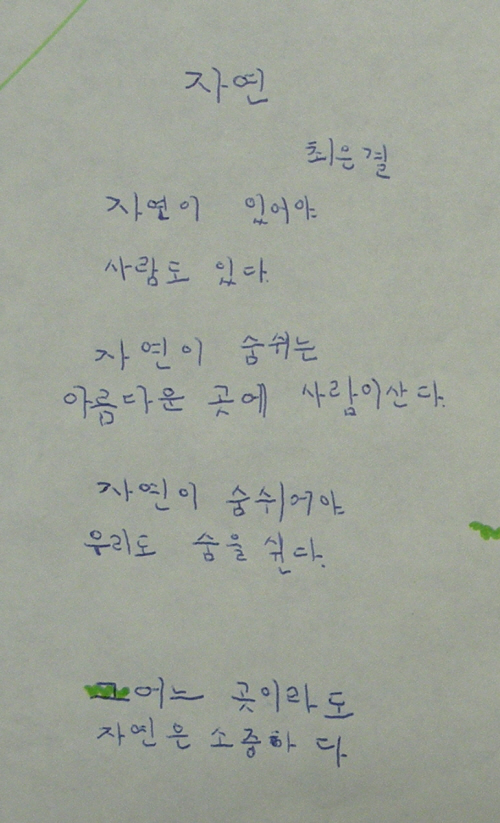 자연
최은결
자연이 있어야
사람도 있다.
자연이 숨쉬는
아름다운 곳에 사람이산다.
자연이 숨쉬어야
우리도 숨을 쉰다.
그 어느 곳이라도
자연은 소중하다